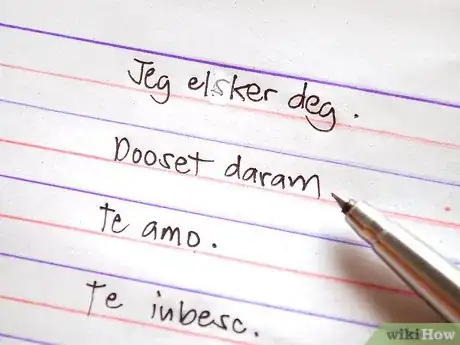 Jeg elsker deg.
Dooset daram
te amo.
te iubesc.
wikiHow